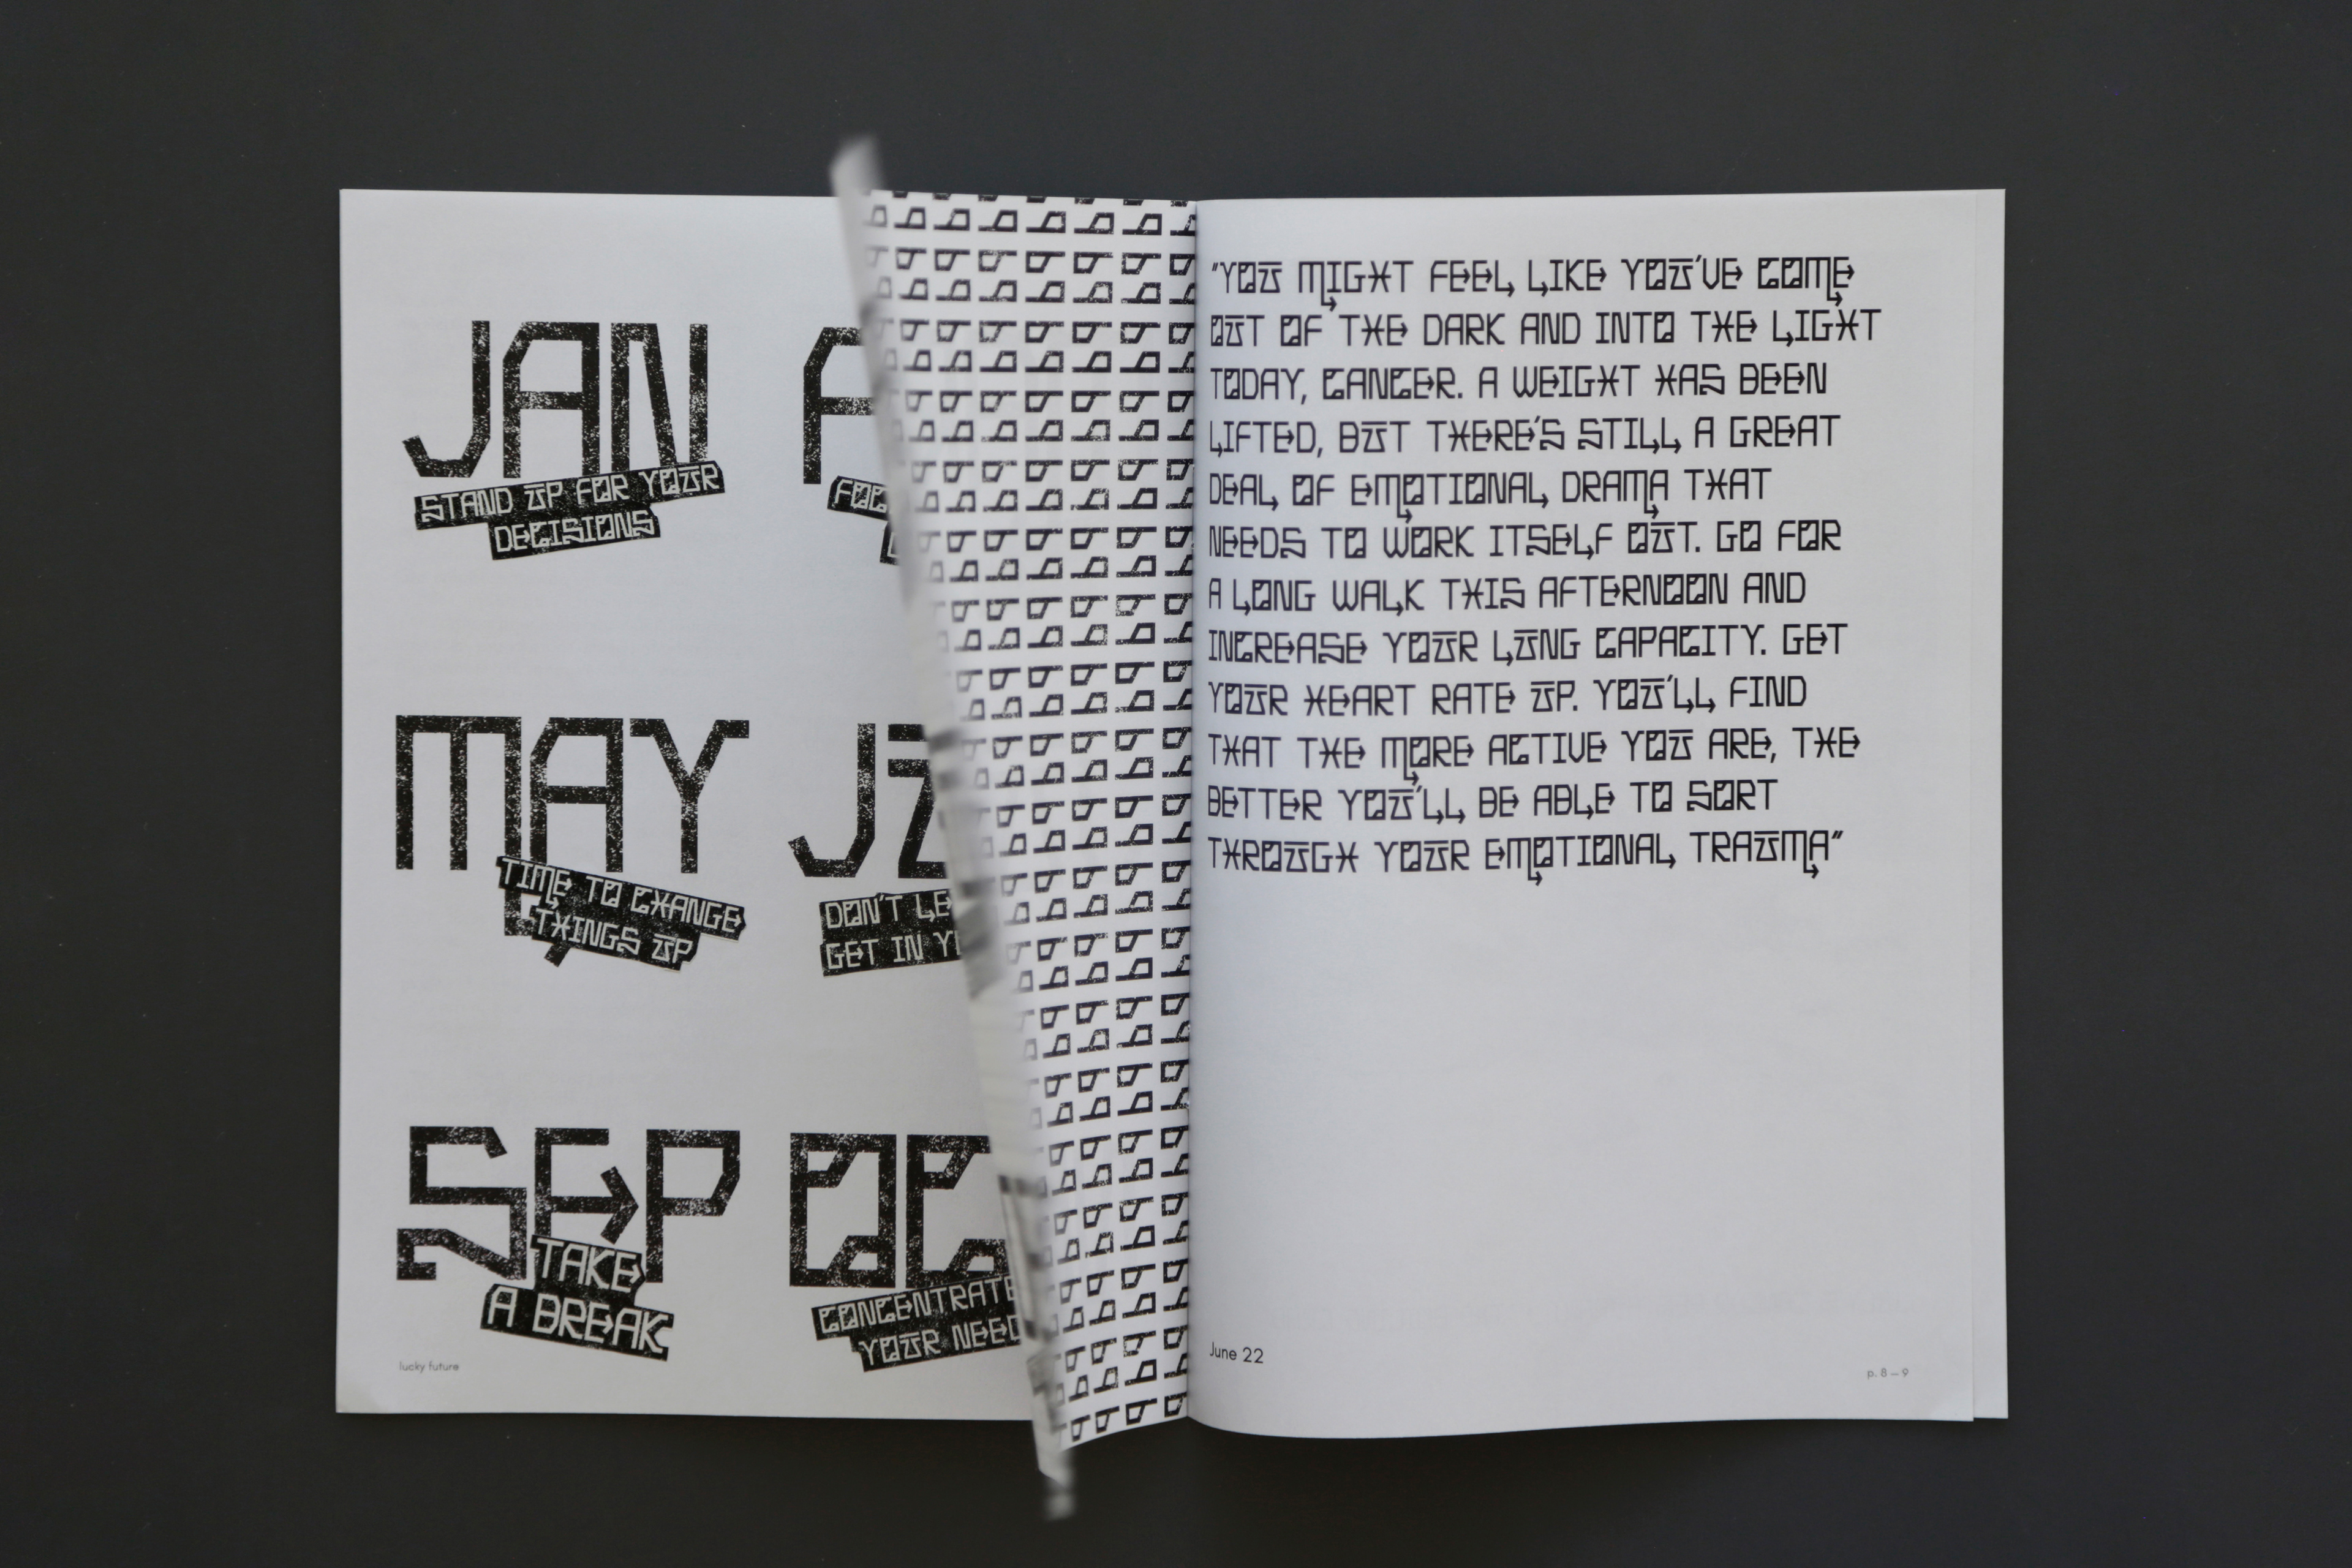 JAN
STAND UP FOR YOUR
DECISIONS
MAY
TIME TO CHANGE
THINGS UP
DON'T
GET IN
SEP
TAKE
A BREAK
CONCENTRATE
YOUR
lucky future
"YOU MIGHT FEEL LIKE YOU'VE COME
OUT OF THE DARK AND INTO THE LIGHT
TODAY, CANCER. A WEIGHT HAS BEEN
LIFTED, BUT THERE'S STILL A GREAT
DEAL OF EMOTIONAL DRAMA THAT
NEEDS TO WORK ITSELF OUT. GO FOR
A LONG WALK THIS AFTERNOON AND
INCREASE YOUR LUNG CAPACITY. GET
YOUR HEART RATE UP. YOU'LL FIND
THAT THE MORE ACTIVE YOU ARE, THE
BETTER YOU'LL BE ABLE TO SORT
THROUGH YOUR EMOTIONAL TRAUMA"
June 22
p. 8 – 9